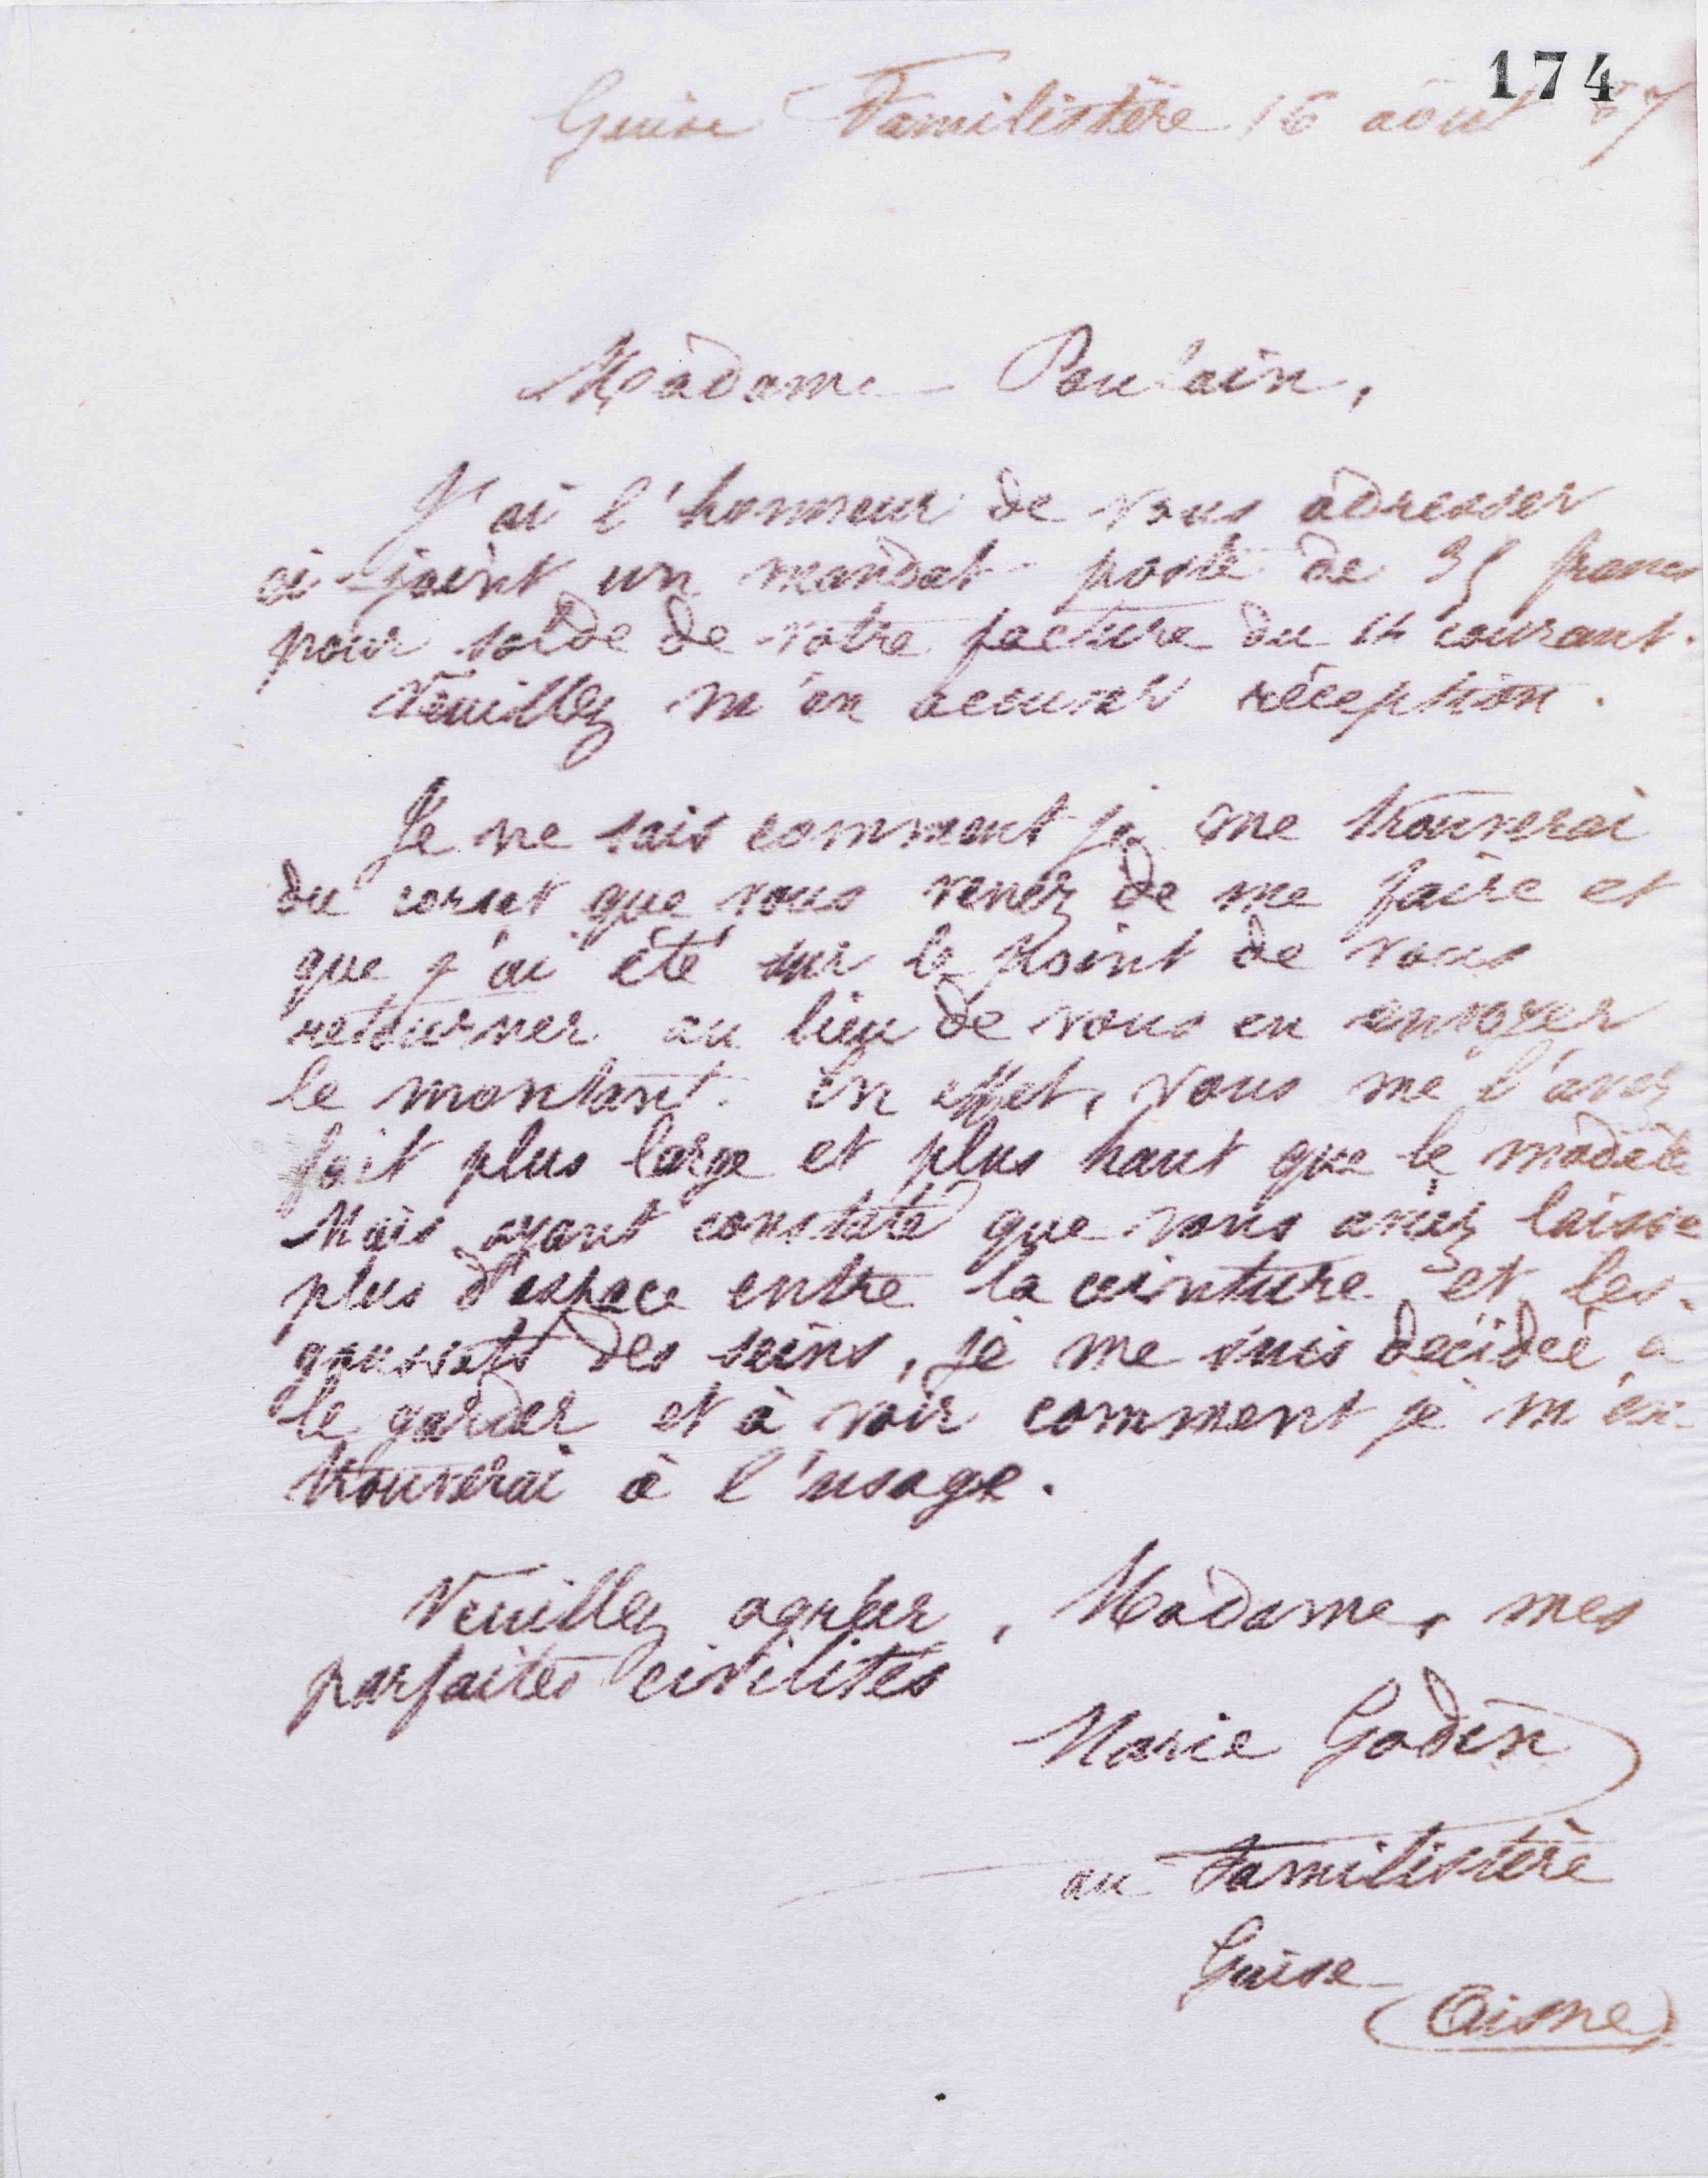 174
Guise Familistère 16 août 87
Madame Poulain,
J'ai l'honneur de vous adresser
ci-joint un mandat-poste de 35 francs
pour solde de votre facture du 14 courant.
Veuillez m'en accuser réception.
Je ne sais comment je me trouverai
du corset que vous venez de me faire et
que j'ai été sur le point de vous
retourner au lieu de vous en envoyer
le montant. En effet, vous me l'avez
fait plus large et plus haut que le modèle
Mais ayant constaté que vous aviez laissé
plus d'espace entre la ceinture et les
goussets des seins, je me suis décidée à
le garder et à voir comment je m'en
trouverai à l'usage.
Veuillez agréer, Madame, mes
parfaites civilités
Marie Godin
au Familistère
Guise
(Aisne)